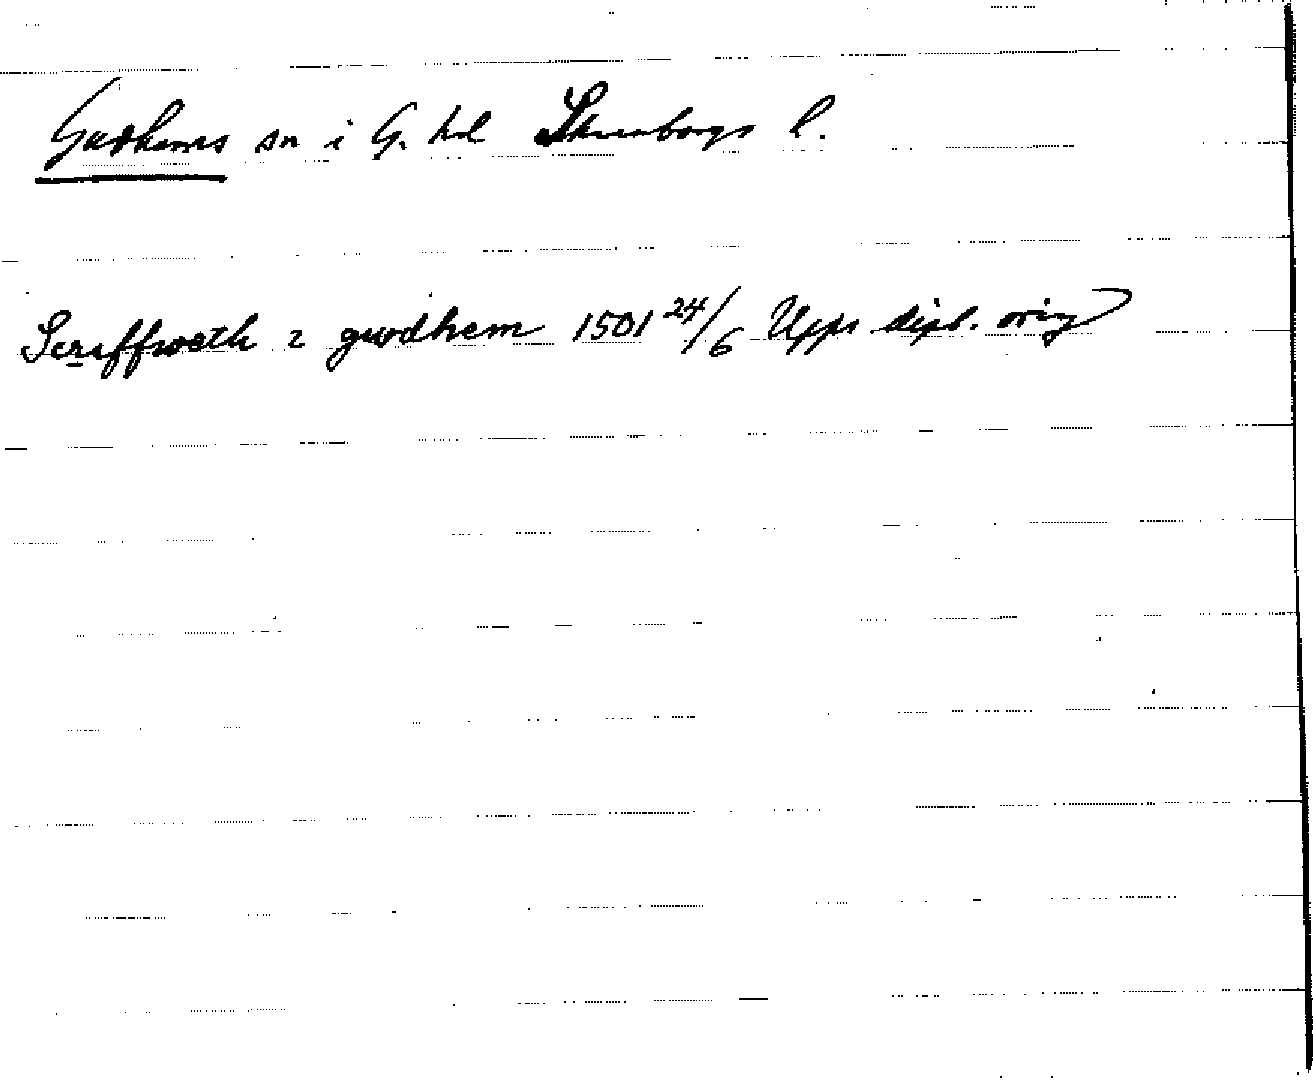 Gudhems sn i G. hd Skaraborgs l.
Scriffweth z gwdhem 1501 24/6 Upps dipl. orig